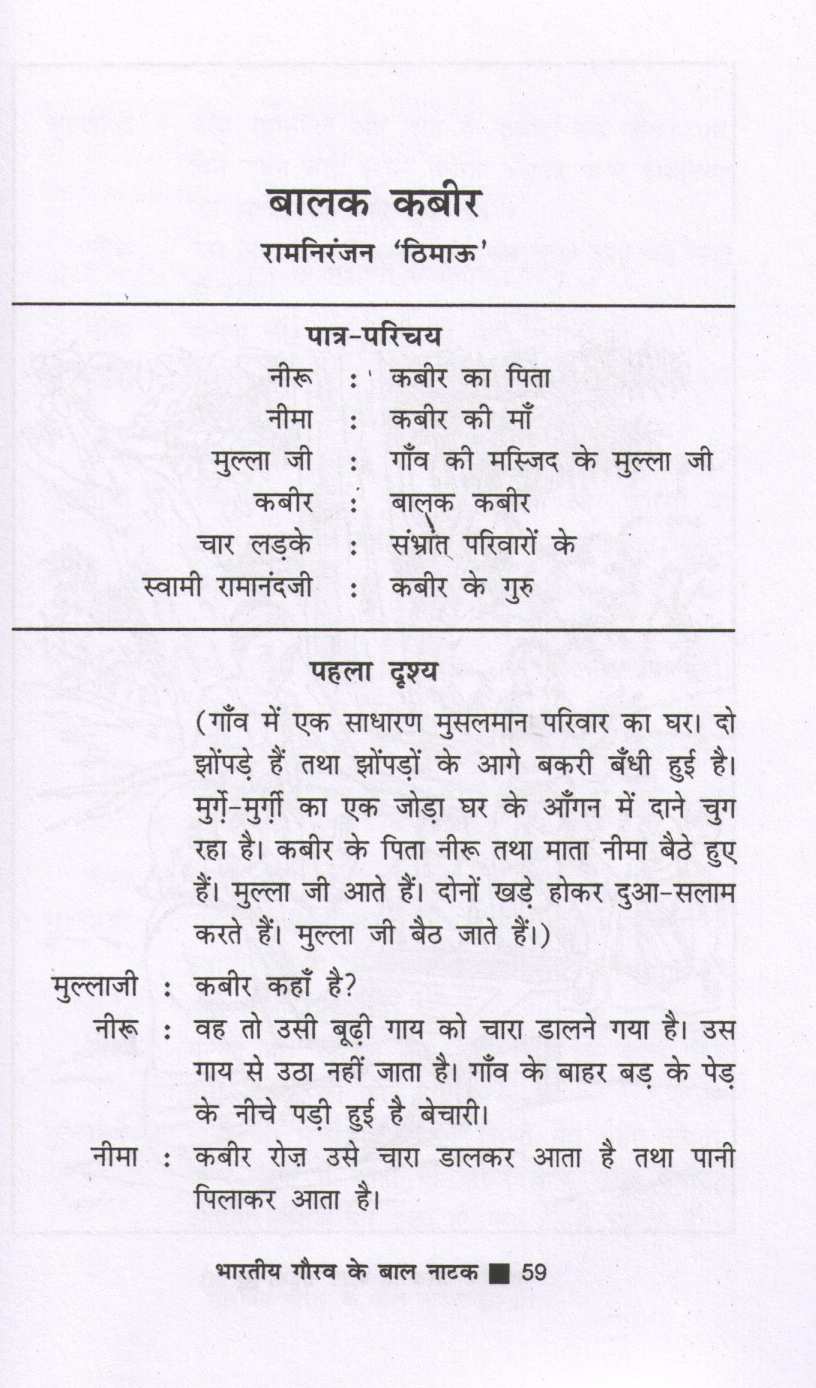 बालक कबीर
रामनिरंजन ‘ठिमाऊ’
पात्र-परिचय
नीरू : कबीर का पिता
नीमा : कबीर की माँ
मुल्ला जी : गाँव की मस्जिद के मुल्ला जी
कबीर : बालक कबीर
चार लड़के : संभ्रांत परिवारों के
स्वामी रामानंदजी : कबीर के गुरु
पहला दृश्य
(गाँव में एक साधारण मुसलमान परिवार का घर। दो
झोंपड़े हैं तथा झोंपड़ों के आगे बकरी बँधी हुई है।
मुर्ग़े-मुर्ग़ी का एक जोड़ा घर के आँगन में दाने चुग
रहा है। कबीर के पिता नीरू तथा माता नीमा बैठे हुए
हैं। मुल्ला जी आते हैं। दोनों खड़े होकर दुआ-सलाम
करते हैं। मुल्ला जी बैठ जाते हैं।)
मुल्लाजी : कबीर कहाँ है?
नीरू : वह तो उसी बूढ़ी गाय को चारा डालने गया है। उस
गाय से उठा नहीं जाता है। गाँव के बाहर बड़ के पेड़
के नीचे पड़ी हुई है बेचारी।
नीमा : कबीर रोज़ उसे चारा डालकर आता है तथा पानी
पिलाकर आता है।
भारतीय गौरव के बाल नाटक ■ 59